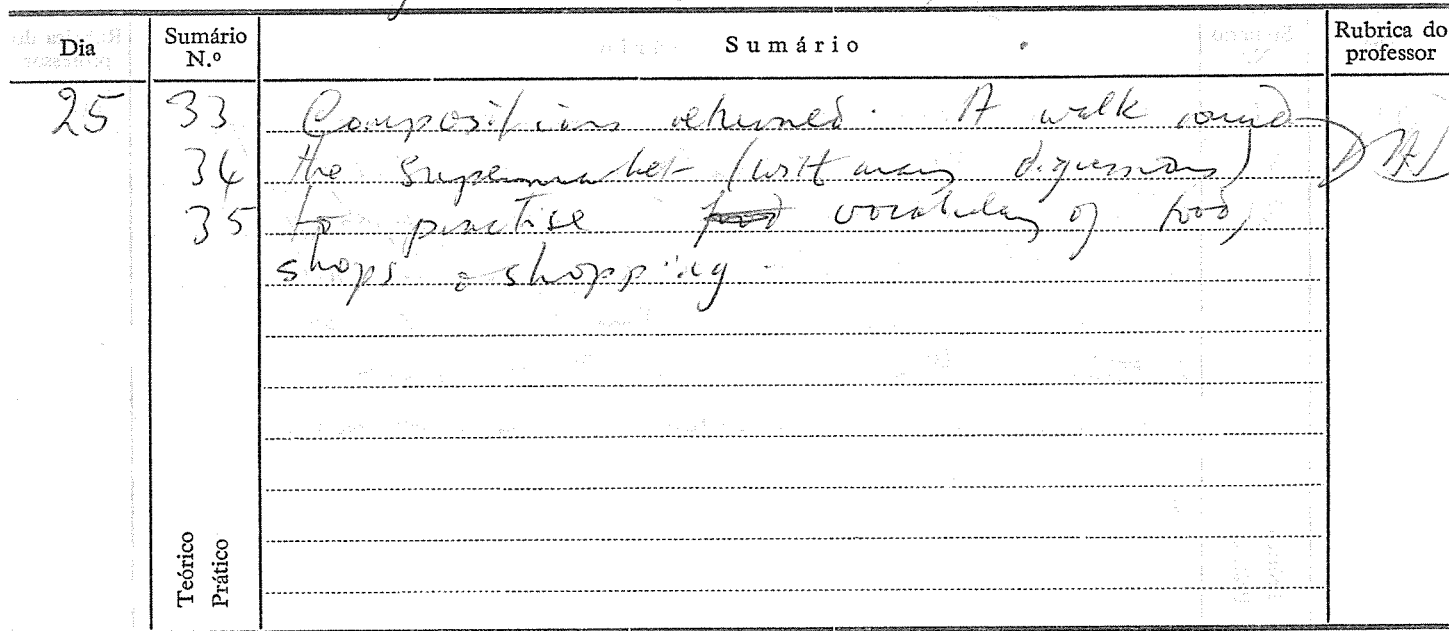 Dia
Sumário N.º
Sumário
Rubrica do professor
25 33 Compositions returned. A walk round
34 the supermarket (with many digressions)
35 to practise food vocabulary of food,
shops & shopping.
Teórico
Prático